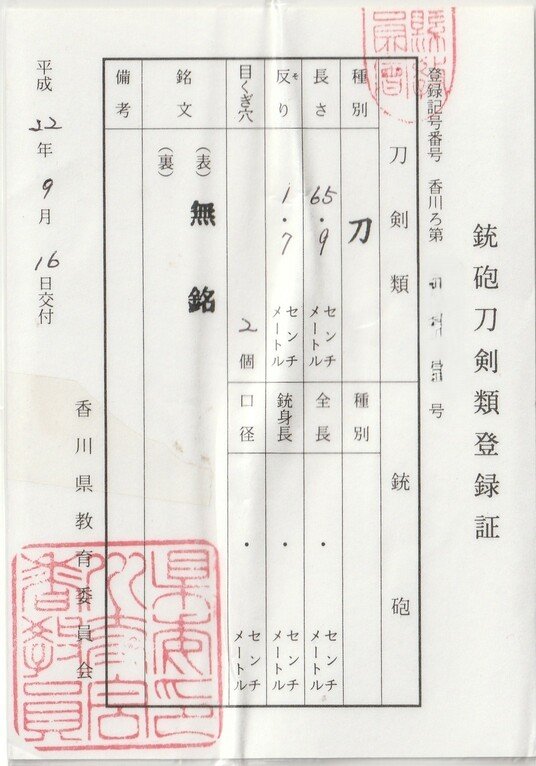 銃砲刀剣類登録証
登録記号番号 香川ろ第 号
刀剣類
銃砲
種別
刀
種別
長さ
65.9
センチメートル
全長
・
センチメートル
反り
そ
1.7
センチメートル
銃身長
・
センチメートル
目くぎ穴
2個
口径
・
センチメートル
銘文
(表) 無銘
(裏)
備考
平成 22年 9月 16日交付
香川県教育委員会